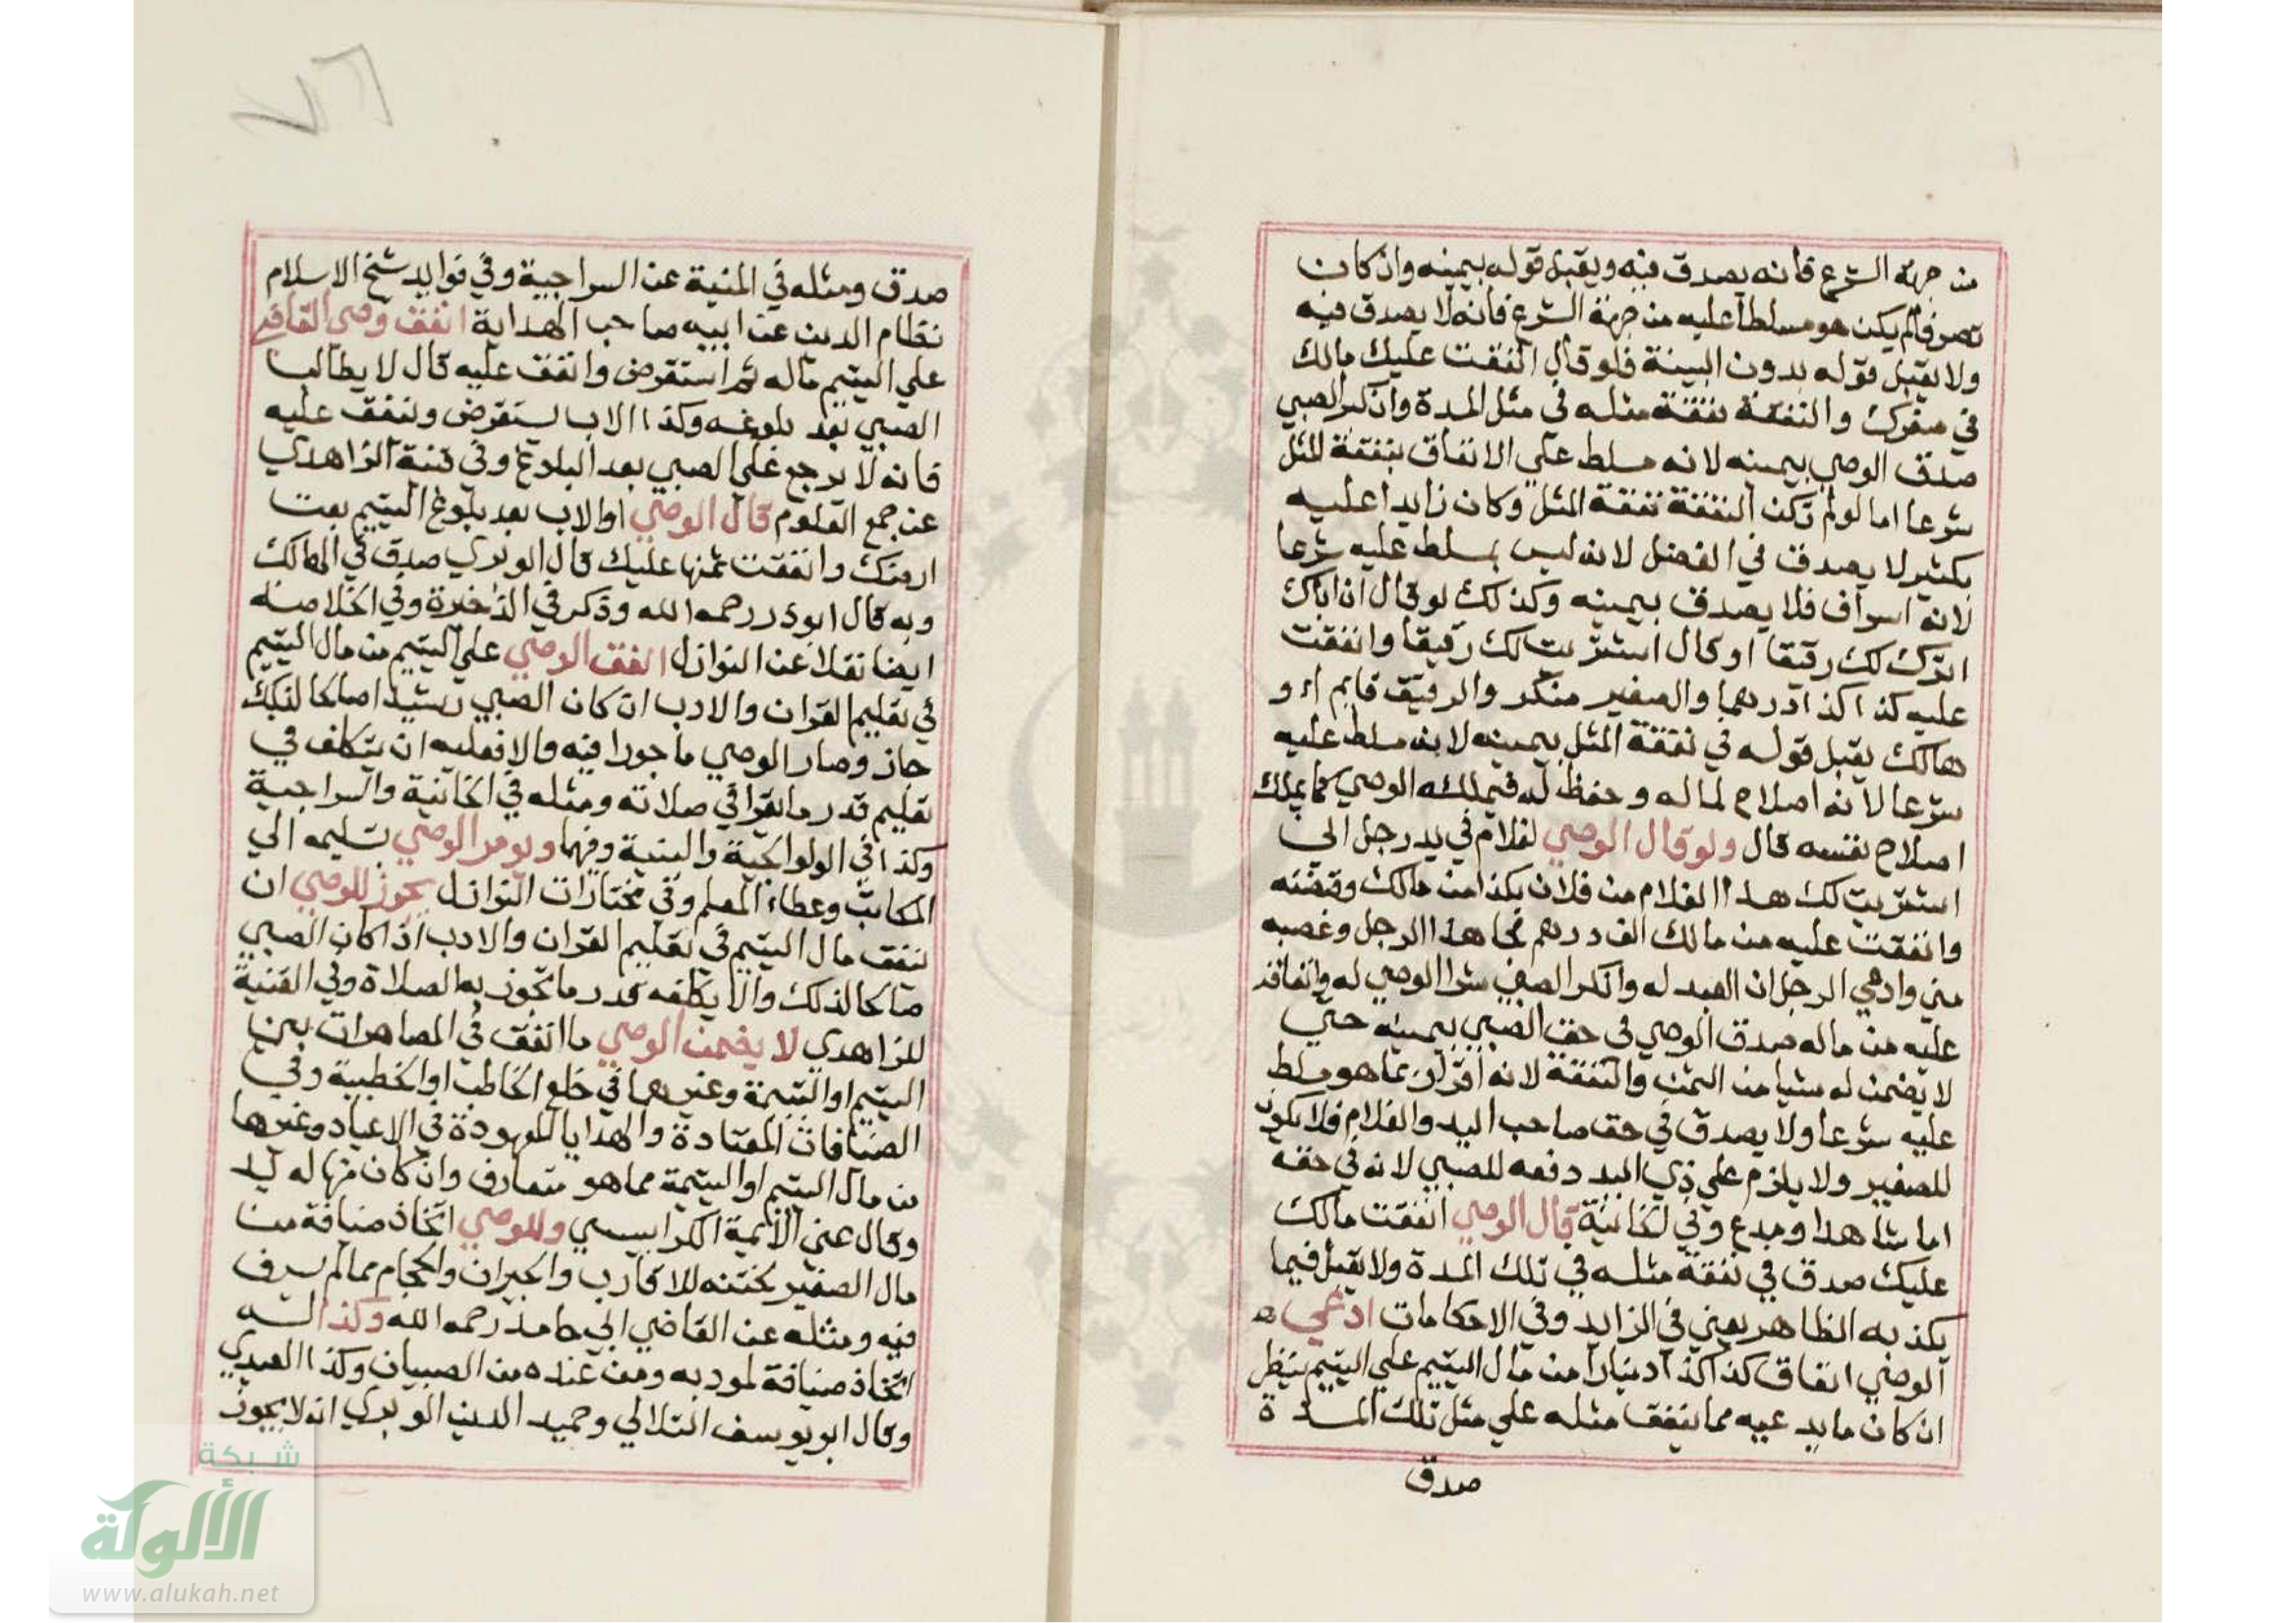 من جهة الشرع فانه يصدق فيه ويقبل قوله بيمينه وان كان
تصرفا لم يكن هو مسلطا عليه من جهة الشرع فانه لا يصدق فيه
ولا يقبل قوله بدون البينة فلو قال انفقت عليك مالك
في صغرك والنفقة نفقة مثله في مثل المدة وانكر الصبي
صدق الوصي بيمينه لانه مسلط علي الانفاق بنفقة المثل
شرعا اما لو لم تكن النفقة نفقة المثل وكان زايدا عليه
بكثير لا يصدق في الفضل لانه ليس بمسلط عليه شرعا
لانه اسراف فلا يصدق بيمينه وكذلك لو قال ان اباك
اترك لك رقيقا او قال اشتريت لك رقيقا وانفقت
عليه كذا كذا درهما والصغير منكر والرقيق قايم او
هالك يقبل قوله في نفقة المثل بيمينه لانه مسلط عليه
شرعا لانه اصلاح لماله وحفظ له فيملكه الوصي كما يملك
اصلاح نفسه قال ولو قال الوصي لغلام في يد رجل اني
اشتريت لك هذا الغلام من فلان بكذا من مالك وقبضته
وانفقت عليه من مالك الف درهم فجا هذا الرجل وغصبه
مني وادعي الرجل ان العبد له وانكر الصغير شرا الوصي له وانفاقه
عليه من ماله صدق الوصي في حق الصبي بيمينه حتي
لا يضمن له شيا من الثمن والنفقة لانه اقرار بما هو مسلط
عليه شرعا ولا يصدق في حق صاحب اليد والغلام فلا يكون
للصغير ولا يلزم علي ذي اليد دفعه للصبي لانه في حقه
اما شاهدا ومدع وفي الخانية قال الوصي انفقت مالك
عليك صدق في نفقة مثله في تلك المدة ولا يقبل فيما
يكذبه الظاهر يعني في الزايد وفي الاحكامات ادعي
الوصي انفاق كذا كذا دينارا من مال اليتيم علي اليتيم ينظر
ان كان ما يدعيه مما ينفق مثله علي مثل تلك المدة
صدق
صدق ومثله في المنية عن السراجية وفي فوايد شيخ الاسلام
نظام الدين عن ابيه صاحب الهداية انفق وصي القاضي
علي اليتيم ماله ثم استقرض وانفق عليه قال لا يطالب
الصبي بعد بلوغه وكذا الاب يستقرض وينفق عليه
فانه لا يرجع علي الصبي بعد البلوغ وفي قنية الزاهدي
عن جمع العلوم قال الوصي او الاب بعد بلوغ اليتيم بعت
ارضك وانفقت ثمنها عليك قال الوبري صدق في الهالك
وبه قال ابو ذر رحمه الله وذكر في الذخيرة وفي الخلاصة
ايضا نقلا عن النوازل انفق الوصي علي اليتيم من مال اليتيم
في تعليم القران والادب ان كان الصبي رشيدا صالحا لذلك
جاز وصار الوصي ماجورا فيه والا فعليه ان يتكلف في
تعليم قدر ما يقرا في صلاته ومثله في الخانية والسراجية
وكذا في الولوالجية والمنية وفيها ويومر الوصي بتسليمه الي
المكاتب وعطاء المعلم وفي مختارات النوازل يجوز للوصي ان
ينفق مال اليتيم في تعليم القران والادب اذا كان الصبي
صالحا لذلك والا يكلفه قدر ما تجوز به الصلاة وفي القنية
للزاهدي لا يضمن الوصي ما انفق في المصاهرات بين
اليتيم او اليتيمة وغيرهما في خلع الخاطب او الخطيبة وفي
الضيافات المعتادة والهدايا المعهودة في الاعياد وغيرها
من مال اليتيم او اليتيمة مما هو متعارف وان كان منها له بد
وقال عين الائمة الكرابيسي وللوصي اتخاذ ضيافة من
مال الصغير لختنه للاقارب والجيران والحجام ما لم يسرف
فيه ومثله عن القاضي ابي حامد رحمه الله وكذا له
اتخاذ ضيافة لمودبه ومن عنده من الصبيان وكذا العيدي
وقال ابو يوسف التلالي وحميد الدين الوبري انه لا يجوز
شبكة
الألوكة
www.alukah.net